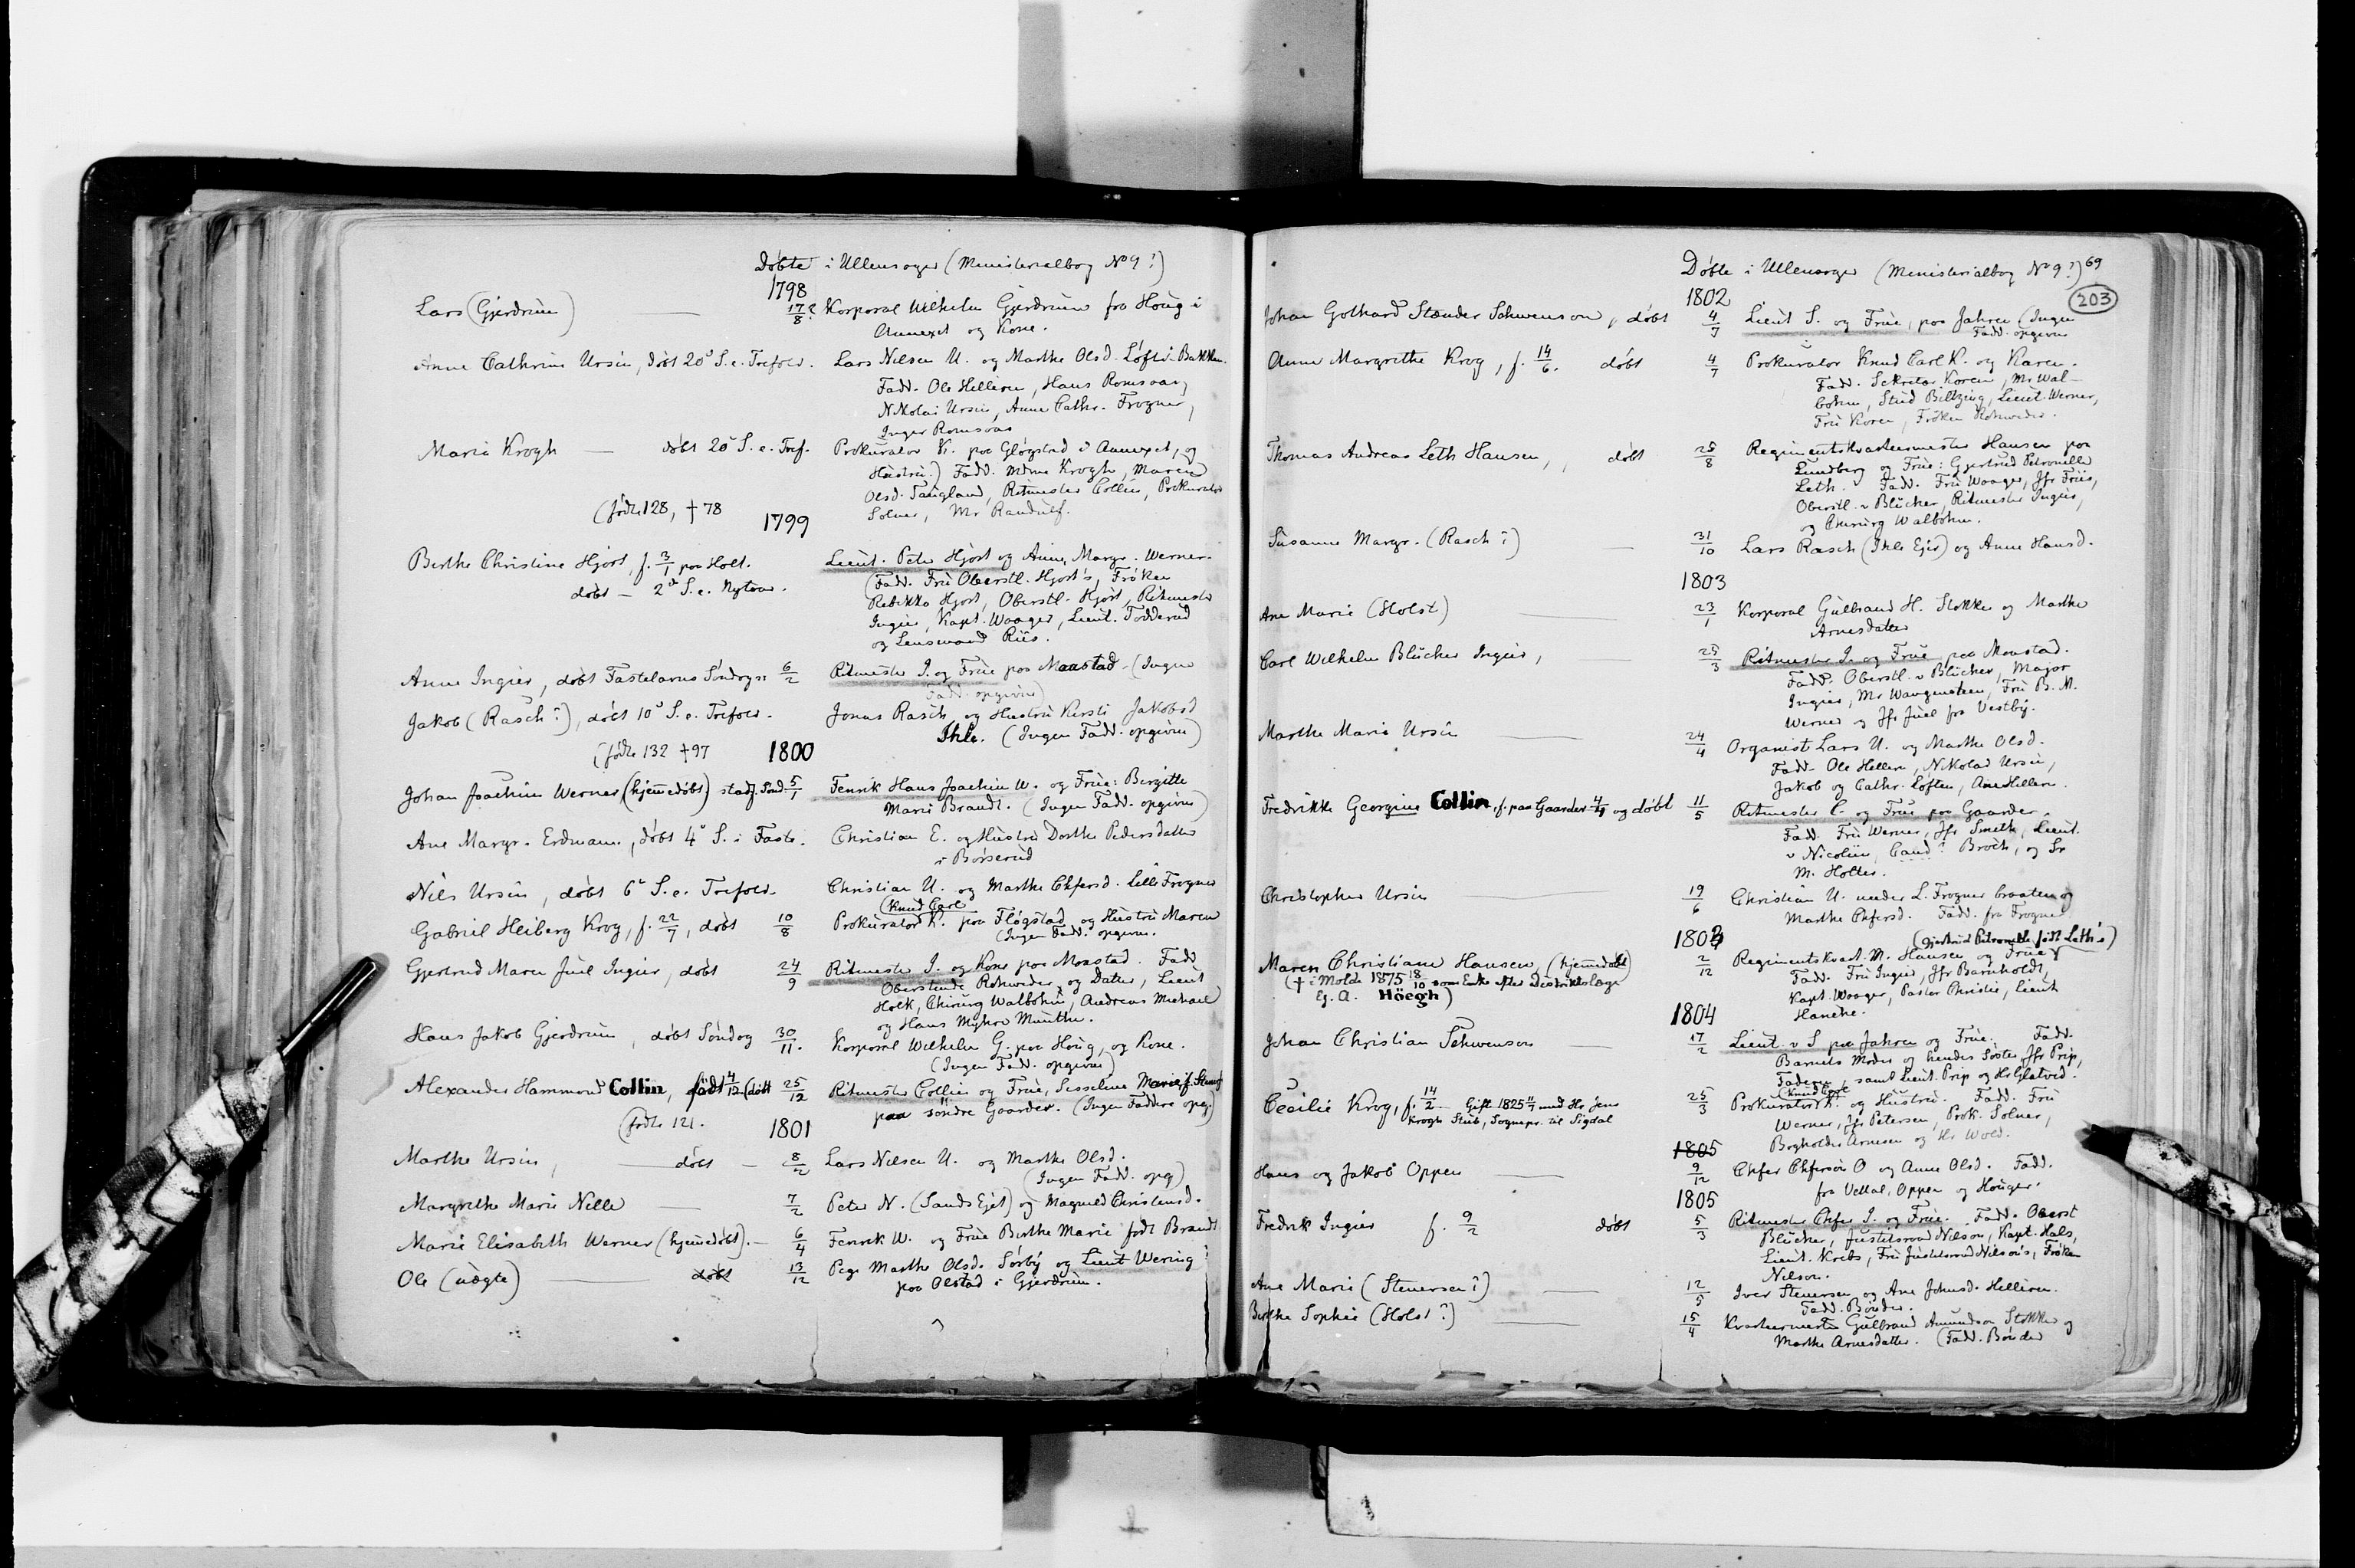 Døbte i Ullensager (Ministerialbog No 9?)
1798
Lars (Gjerdrum) — 17/8? Korporal Wilhelm Gjerdrum fra Houg i
Annexet og Kone.
Anne Cathrine Ursin, døbt 20de S. e. Trefold. Lars Nilsen U. og Marthe Olsd. Løfti-Bakken.
Fadd. Ole Helleren, Hans Romsaas,
Nikolai Ursin, Anne Cathr. Frogner,
Inger Romsaas
Maria Krogh — døbt 20de S. e. Tref. Prokurator K. paa Gløgstad i Annexet, og
Hustru.) Fadd. Mdme Krogh, Maren
Olsd. Taugland, Ritmester Collin, Prokurator
Solner, Mr Randulf.
(fødte 128, † 78
1799
Birthe Christine Hjort, f. 3/1 paa Holt. Lieut. Peter Hjort og Anne Margr. Werner.
døbt — 2den S. e. Nytaar. (Fadd. Fru Oberstl. Hjort's, Frøken
Rebekka Hjort, Oberstl. Hjort, Ritmester
Ingier, Kapt. Waager, Lieut. Fodderud
og Lensmand Riis.
Anne Ingier, døbt Fastelavns Søndag: 6/2 Ritmester I. og Frue paa Maastad. (Ingen
Fadd. opgivne)
Jakob (Rasch?), døbt 10de S. e. Trefold. Jonas Rasch og Hustru Kersti Jakobsd
Ihle. (Ingen Fadd. opgivne)
(fødte 132 † 97 1800
Johan Joachim Werner (hjemmedøbt) stadf. Sønd. 5/1 Fenrik Hans Joachim W. og Frue: Birgitte
Marie Brandt. (Ingen Fadd. opgivne)
Ane Margr. Erdmann, døbt 4de S. i Faste. Christian E. og Hustru Dorthe Pedersdatter
i Børserud
Nils Ursin, døbt 6te S. e. Trefold. Christian U. og Marthe Chfersd. Lille Frogner
Gabriel Heiberg Krog, f. 22/7, døbt 10/8 Prokurator (Knud Carl) K. paa Fløgstad og Hustru Maren
(Ingen Fadd. opgivne.
Gjertrud Maren Juel Ingier, døbt 24/9 Ritmester I. og Kone paa Maastad. Fadd
Oberstinde Rohweder og Datter, Lieut
Holk, Chirurg Walbohm, Andreas Michael
og Hans Myhre Munthe.
Hans Jakob Gjerdrum, døbt Søndag 30/11. Korporal Wilhelm G. paa Houg, og Kone.
(Ingen Fadd. opgivne)
Alexander Hammond Collin, født 4/12 (døbt 25/12 Ritmester Collin og Frue, Sesseline Marie f.
paa søndre Gaarder. (Ingen Faddere opg.)
(fødte 121. 1801
Marthe Ursin, — døbt — 8/2 Lars Nilsen U. og Marthe Olsd.
(Ingen Fadd. opg)
Margrethe Marie Nelle — 7/2 Peter N. (Sands Ejet) og Magnild Christensd.
Marie Elisabeth Werner (hjemmedøbt). — 6/4 Fenrik W. og Frue Birthe Marie født Brandt
Ole (uægte) — døbt 13/12 Pige Marthe Olsd. Sørby og Lieut Wering?
paa Olstad i Gjerdrum.
Døbte i Ullensager (Ministerialbog No 9?) 69
203
1802
Johan Gothard Stender Schwenson, døbt 4/7 Lieut S. og Frue, paa Jahren (Ingen
Fadd. opgivne
Anne Margrethe Krog, f. 14/6. døbt 4/7 Prokurator Knud Carl K. og Karen.
Fadd. Sekretær Koren, Mr Wal-
bohm, Stud Biltzing, Lieut. Werner,
Fru Koren, Frøken Rohweder.
Thomas Andreas Leth Hansen, døbt 25/8 Regimentskvartermester Hansen paa
Lundberg og Frue: Gjertrud Petronelle
Leth. Fadd. Fru Waager, Jfr Friis,
Oberstl. v Blücher, Ritmester Ingier,
og Chirurg Walbohm.
Susanne Margr. (Rasch?) — 31/10 Lars Rasch (Ihle Ejer) og Anne Hansd.
1803
Ane Marie (Holst) — 23/1 Korporal Gulbrand H. Stokker og Marthe
Arnesdatter
Carl Wilhelm Blücher Ingier, — 25/3 Ritmester I. og Frue paa Maastad.
Fadd. Oberstl. v Blücher, Major
Ingier, Mr Wangensteen, Fru B. M.
Werner og Jfr Juel fra Vestby.
Marthe Marie Ursin — 24/4 Organist Lars U. og Marthe Olsd.
Fadd. Ole Helleren, Nikolai Ursin,
Jakob og Cathr. Løften, Ane Helleren.
Fredrikke Georgine Collin, f. paa Gaarder 4/4 og døbt 11/5 Ritmester C. og Frue paa Gaarder.
Fadd. Fru Werner, Jfr Smith, Lieut.
v Nicolün, Cand? Broch, og Sr
M. Holter.
Christopher Ursin — 19/6 Christian U. under L. Frogner braaten og
Marthe Chfersd. Fadd. fra Frogner
1803 (Gjertrud Petronelle født Leth)
Maren Christiane Hansen (hjemmedøbt) 2/12 Regimentskvart. M. Hansen og Frue
(† i Molde 1875 18/10 som Enke efter Distriktslæge
Ej. A. Höegh)
Fadd. Fru Ingier, Jfr Barnholdt,
Kapt. Waager, Pastor Christie, Lieut
Hanche.
1804
Johan Christian Schwenson — 17/2 Lieut. v S paa Jahren og Frue. Fadd.
Barnets Moder og hendes Søster Jfr Prip,
Faderen, samt Lieut. Prip og Hr Glatved.
Cecilie Krog, f. 14/2 — Gift 1825 11/7 med Hr Jens
Krogh Stub, Sognepr. til Sigdal
25/3 Prokurator (Knud Carl) K. og Hustru. Fadd. Fru
Werner, Jfr Petersen, Prok. Solner,
Bogholder Arnesen og Hr Wold.
1805
Hans og Jakob Oppen — 9/12 Chfer Chfersøn O og Anne Olsd. Fadd.
fra Vettal, Oppen og Houger.
1805
Fredrik Ingier f. 9/2 døbt 5/3 Ritmester Chfer I. og Frue. Fadd. Oberst
Blücher, Justitsraad Nilson, Kapt. Hals,
Lieut. Krebs, Fru Justitsraad Nilson's, Frøken
Nilson.
Ane Marie (Stenersen?) — 12/5 Iver Stenersen og Ane Johnsd. Helleren.
Fadd. Bønder.
Birthe Sophie (Holst?) — 15/4 Kvartermester Gulbrand Amundson Stokker og
Marthe Arnesdatter. (Fadd. Bønder